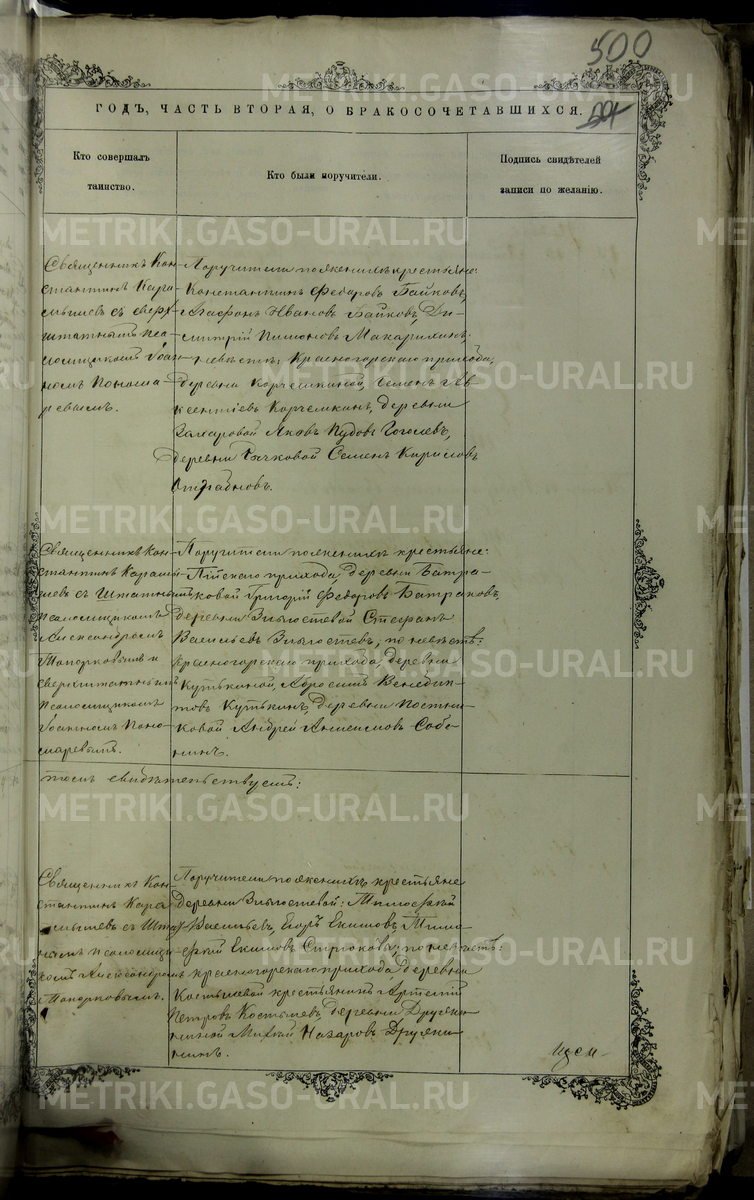 500
ГОДЪ, ЧАСТЬ ВТОРАЯ, О БРАКОСОЧЕТАВШИХСЯ.
Кто совершалъ
таинство.
Кто были поручители.
Подпись свидѣтелей
записи по желанію.
Священникъ Кон-
стантинъ Кара-
мышевъ съ сверх-
штатнымъ пса-
ломщикомъ Іоан-
номъ Понома-
ревымъ.
Поручители по женихѣ крестьяне
Константинъ Федоровъ Байковъ,
Агафонъ Ивановъ Байковъ, Ди-
митрій Пимоновъ Макарихинъ;
по невѣстѣ: Красногорскаго прихода,
деревни Корчемкиной, Семенъ Ав-
ксентіевъ Корчемкинъ, деревни
Захаровой Яковъ Кудовъ Гоголевъ,
деревни Бычковой Семенъ Кириловъ
Священникъ Кон-
стантинъ Карам-
шевъ съ Штатнымъ
псаломщикомъ
Александромъ
Топорковымъ и
сверхштатнымъ
псаломщикомъ
Іоанномъ Поно-
маревымъ.
Поручители по женихѣ крестьяне:
прихода, деревни Батра-
ковой Григорій Федоровъ Батраковъ,
деревни Стефанъ
Васильевъ по невѣстѣ:
Красногорскаго прихода, деревни
Кутькиной, Абросимъ Венедик-
товъ Кутькинъ, деревни Постни-
ковой Андрей Анисимовъ Собо-
нинъ.
томъ свидѣтельствуемъ:
Священникъ Кон-
стантинъ Кара-
мышевъ съ Штат-
нымъ псаломщи-
комъ Александромъ
Топорковымъ.
Поручители по женихѣ крестьяне
деревни Тимофей
Васильевъ, Егоръ Екимовъ, Тимо-
фей Екимовъ Стрюковы; по невѣстѣ:
красногорскаго прихода деревни
Костылевой крестьянинъ Артемій
Петровъ Костылевъ, деревни Дружи-
ниной Михей Назаровъ Дружи-
нинъ.
METRIKI.GASO-URAL.RU